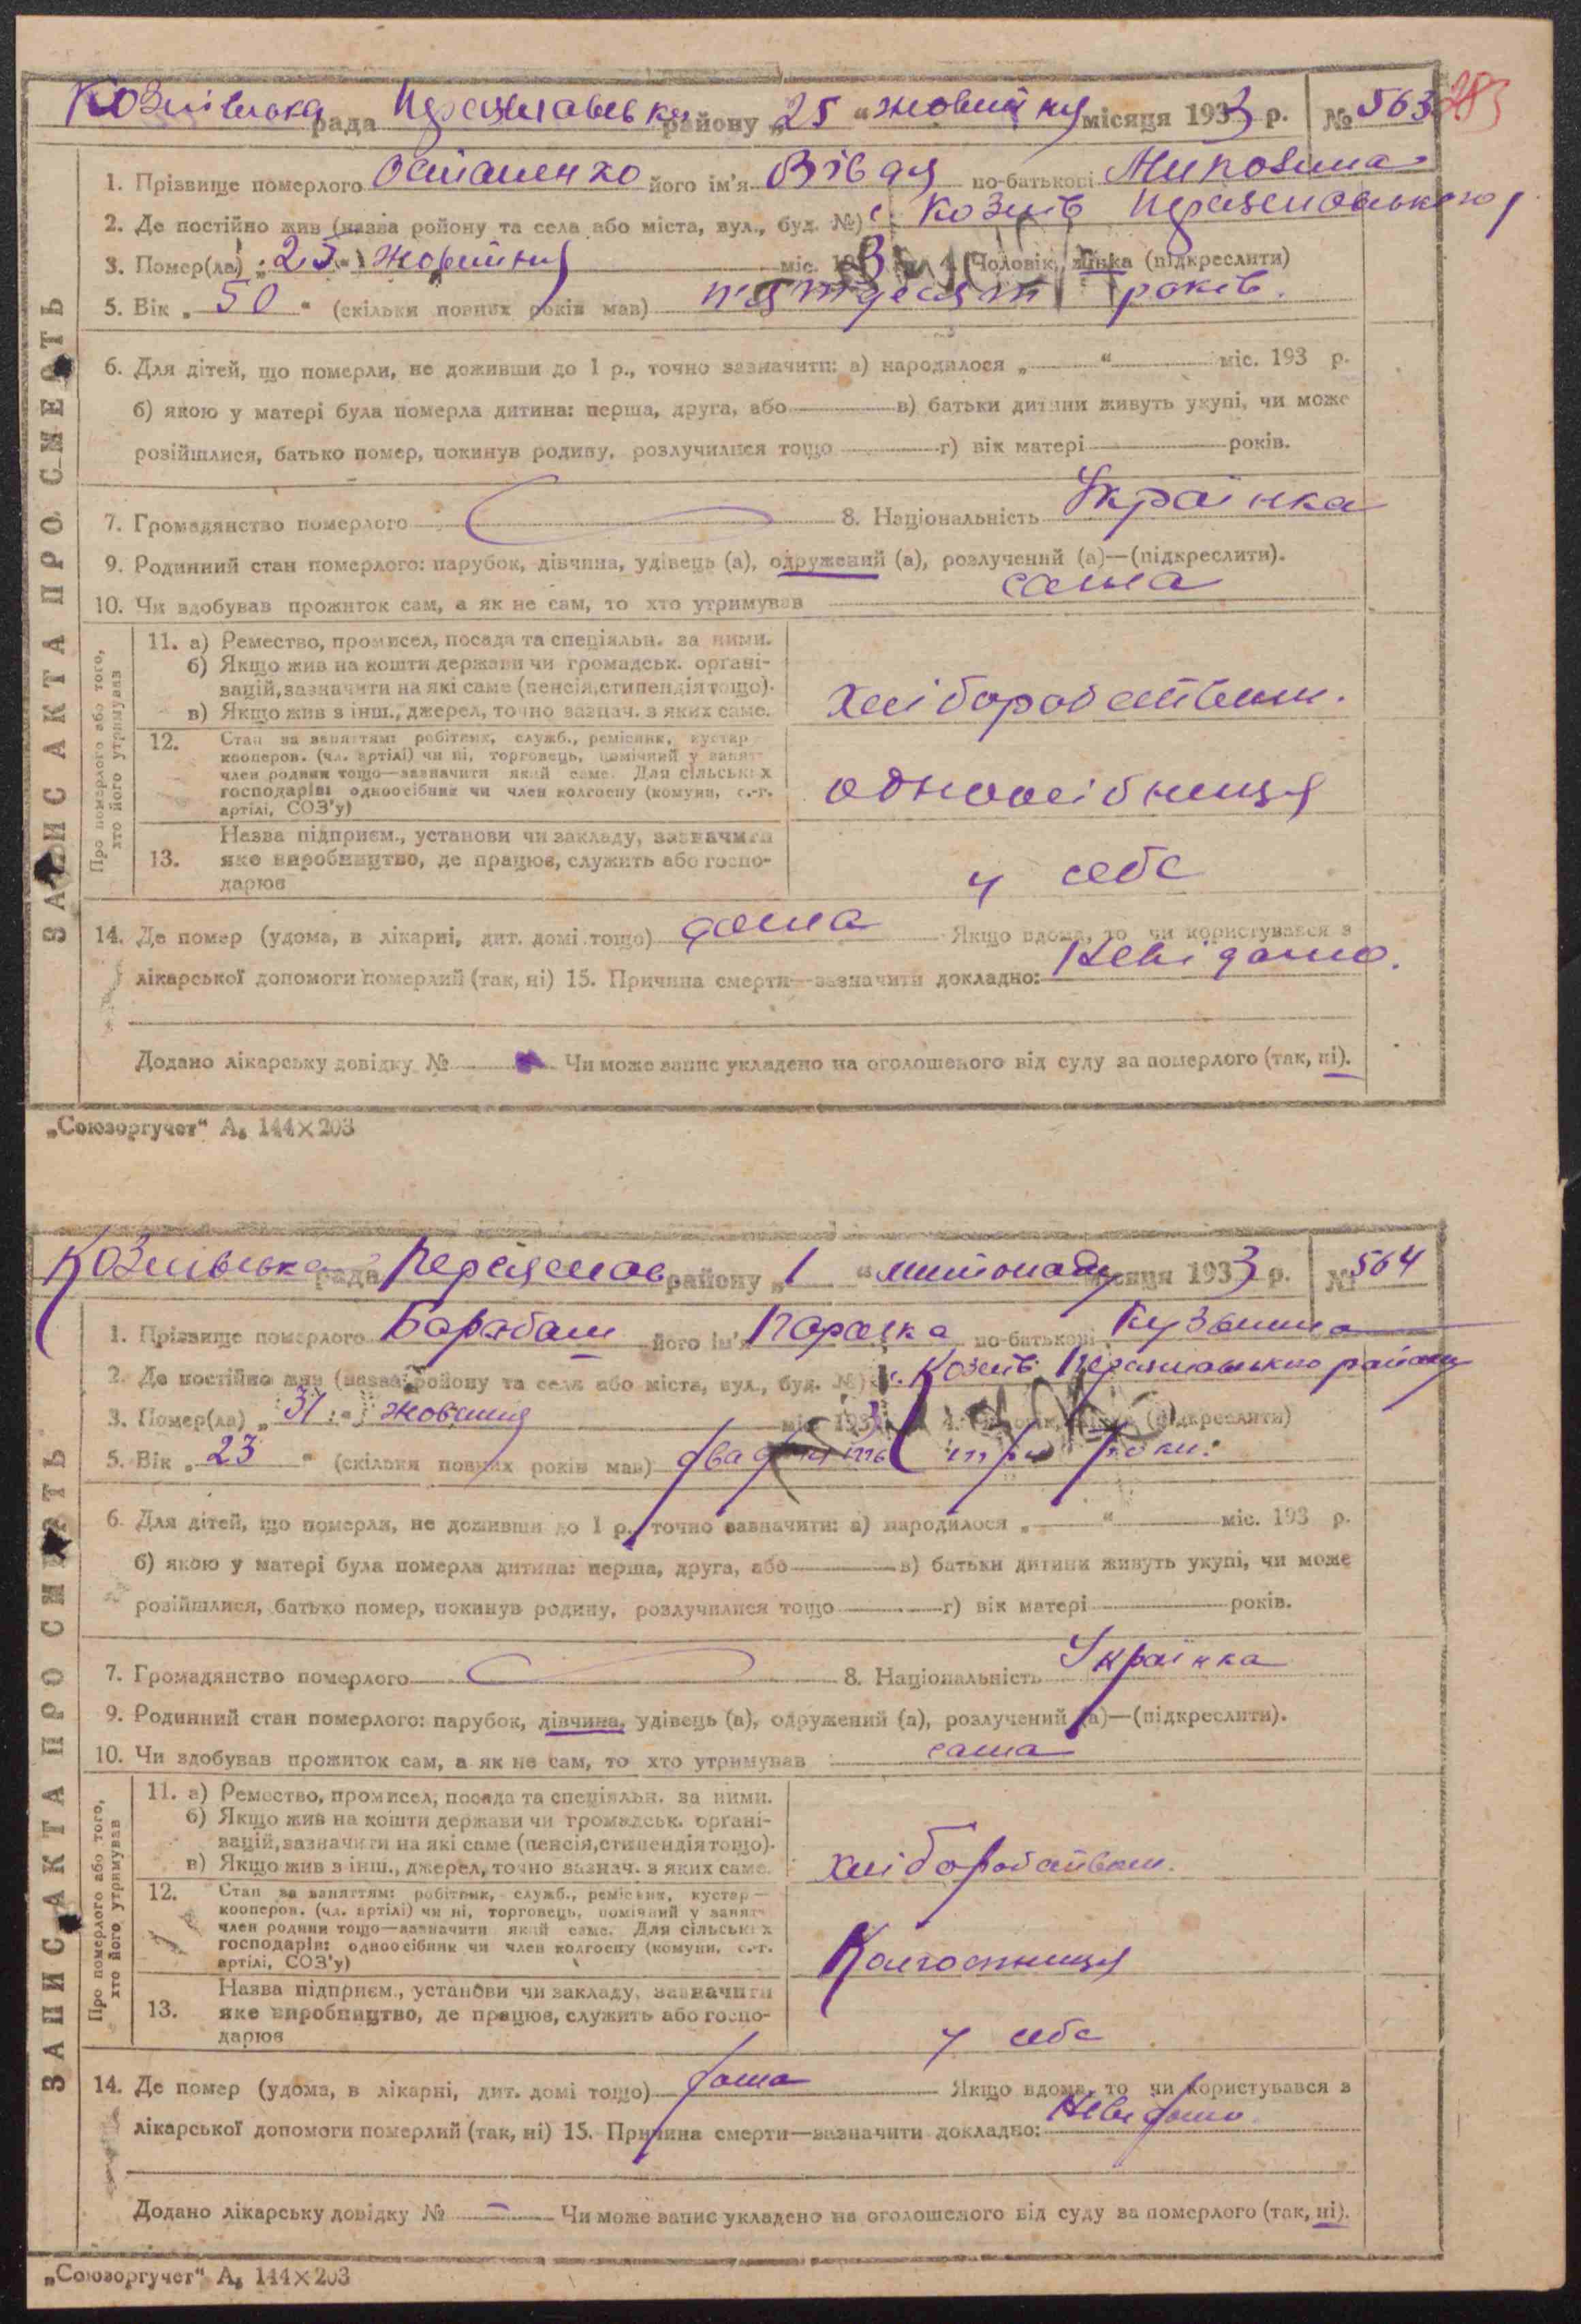 Козлівська рада Переяславськ району „25“ жовтня місяця 1933 р. № 563 283
1. Прізвище померлого Остапенко його ім'я Вівдя по-батькові
2. Де постійно жив (назва ройону та села або міста, вул., буд. №) с. Козлів Переяславського р
3. Помер(ла) „25“ жовтня міс. 193 Чоловік, жінка (підкреслити)
5. Вік „50“ (скільки повних років мав) п'ятдесят років.
6. Для дітей, що померли, не доживши до 1 р., точно зазначити: а) народилося „ “ міс. 193 р.
б) якою у матері була померла дитина: перша, друга, або в) батьки дитини живуть укупі, чи може
розійшлися, батько помер, покинув родину, розлучилися тощо г) вік матері років.
7. Громадянство померлого 8. Національність Українка
9. Родинний стан померлого: парубок, дівчина, удівець (а), одружений (а), розлучений (а)—(підкреслити).
10. Чи здобував прожиток сам, а як не сам, то хто утримував сама
ЗАПИС АКТА ПРО СМЕРТЬ
Про померлого або того, хто його утримував
11. а) Ремество, промисел, посада та спеціяльн. за ними.
б) Якщо жив на кошти держави чи громадськ. органі-
зацій, зазначити на які саме (пенсія, стипендія тощо).
в) Якщо жив з інш., джерел, точно зазнач. з яких саме.
хліборобством.
12. Стан за заняттям: робітник, служб., ремісник, кустар
кооперов. (чл. артілі) чи ні, торговець, помічний у занят
член родини тощо—зазначити який саме. Для сільських
господарів: одноосібник чи член колгоспу (комуни, с.-г.
артілі, СОЗ'у)
одноосібниця
13. Назва підприєм., установи чи закладу, зазначити
яке виробництво, де працює, служить або госпо-
дарює
у себе
14. Де помер (удома, в лікарні, дит. домі тощо) дома Якщо вдома, то чи користувався з
лікарської допомоги померлий (так, ні) 15. Причина смерти—зазначити докладно: Невідомо.
Додано лікарську довідку № Чи може запис укладено на оголошеного від суду за померлого (так, ні).
„Союзоргучет“ А₅ 144×203
Козлівська рада Переяслав району „1“ листопада місяця 1933 р. № 564
1. Прізвище померлого Барабаш його ім'я Параска по-батькові Кузьмина
2. Де постійно жив (назва ройону та села або міста, вул., буд. №) с. Козлів Переяславського району
3. Помер(ла) „31“ жовтня міс. 193 (підкреслити)
5. Вік „23“ (скільки повних років мав) двадцять три роки.
6. Для дітей, що померли, не доживши до 1 р., точно зазначити: а) народилося „ “ міс. 193 р.
б) якою у матері була померла дитина: перша, друга, або в) батьки дитини живуть укупі, чи може
розійшлися, батько помер, покинув родину, розлучилися тощо г) вік матері років.
7. Громадянство померлого 8. Національність Українка
9. Родинний стан померлого: парубок, дівчина, удівець (а), одружений (а), розлучений (а)—(підкреслити).
10. Чи здобував прожиток сам, а як не сам, то хто утримував сама
ЗАПИС АКТА ПРО СМЕРТЬ
Про померлого або того, хто його утримував
11. а) Ремество, промисел, посада та спеціяльн. за ними.
б) Якщо жив на кошти держави чи громадськ. органі-
зацій, зазначити на які саме (пенсія, стипендія тощо).
в) Якщо жив з інш., джерел, точно зазнач. з яких саме.
хліборобством.
12. Стан за заняттям: робітник, служб., ремісник, кустар—
кооперов. (чл. артілі) чи ні, торговець, помічний у занят
член родини тощо—зазначити який саме. Для сільських
господарів: одноосібник чи член колгоспу (комуни, с.-г.
артілі, СОЗ'у)
Колгоспниця
13. Назва підприєм., установи чи закладу, зазначити
яке виробництво, де працює, служить або госпо-
дарює
у себе
14. Де помер (удома, в лікарні, дит. домі тощо) дома Якщо вдома, то чи користувався з
лікарської допомоги померлий (так, ні) 15. Причина смерти—зазначити докладно: Невідомо
Додано лікарську довідку № — Чи може запис укладено на оголошеного від суду за померлого (так, ні).
„Союзоргучет“ А₅ 144×203